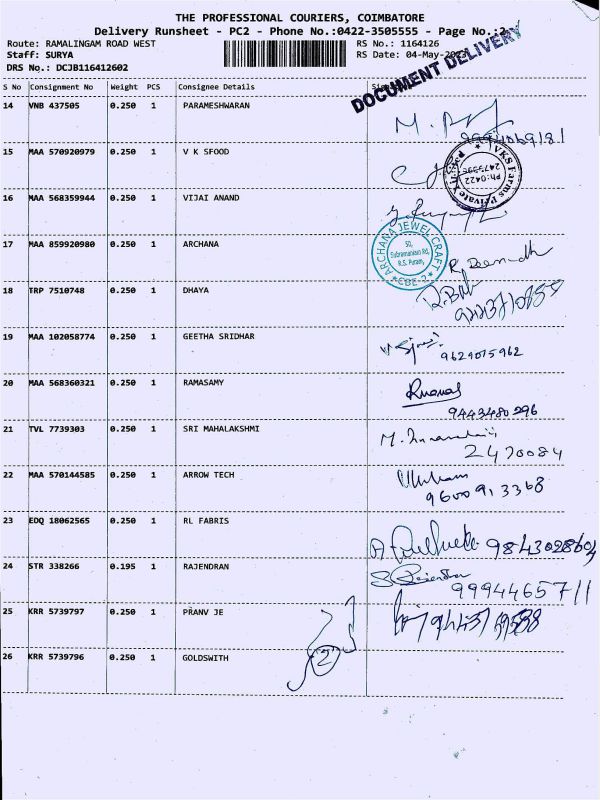 THE PROFESSIONAL COURIERS, COIMBATORE
Delivery Runsheet - PC2 - Phone No.:0422-3505555 - Page No.:2
Route: RAMALINGAM ROAD WEST
RS No.: 1164126
Staff: SURYA
RS Date: 04-May-2023
DRS No.: DCJB116412602
DOCUMENT DELIVERY
S No Consignment No Weight PCS Consignee Details
14 VNB 437505 0.250 1 PARAMESHWARAN
15 MAA 570920979 0.250 1 V K SFOOD
VKS Farms Private
Ph:0422
16 MAA 568359944 0.250 1 VIJAI ANAND
17 MAA 859920980 0.250 1 ARCHANA
ARCHANA JEWEL CRAFT
50,
Subramaniam Rd,
R.S. Puram,
CBE-2
18 TRP 7510748 0.250 1 DHAYA
19 MAA 102058774 0.250 1 GEETHA SRIDHAR
9629075962
20 MAA 568360321 0.250 1 RAMASAMY
9443480296
21 TVL 7739303 0.250 1 SRI MAHALAKSHMI
2470084
22 MAA 570144585 0.250 1 ARROW TECH
9600913368
23 EDQ 18062565 0.250 1 RL FABRIS
9843028604
24 STR 338266 0.195 1 RAJENDRAN
9994465711
25 KRR 5739797 0.250 1 PRANV JE
26 KRR 5739796 0.250 1 GOLDSWITH
2